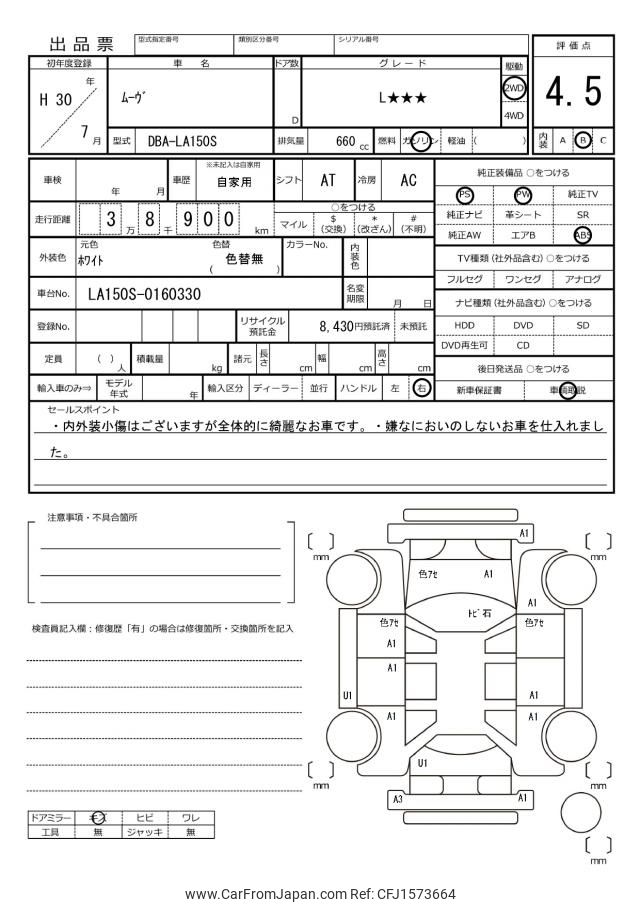 出品票 型式指定番号 類別区分番号 シリアル番号
評価点
4.5
内装 A B C
初年度登録 車名 ドア数 グレード 駆動
H 30 年 7 月 ﾑｰｳﾞ D L★★★ 2WD 4WD
型式 DBA-LA150S 排気量 660 cc 燃料 ガソリン 軽油 ( )
車検 年 月 車歴 ※未記入は自家用 自家用 シフト AT 冷房 AC
走行距離 3 万 8 千 9 0 0 km
○をつける
マイル $(交換) *(改ざん) #(不明)
外装色 元色 ﾎﾜｲﾄ 色替 ( 色替無 ) カラーNo. 内装色
車台No. LA150S-0160330 名変期限 月 日
登録No. リサイクル預託金 8,430円預託済 未預託
定員 ( )人 積載量 kg 諸元 長さ cm 幅 cm 高さ cm
輸入車のみ⇒ モデル年式 年 輸入区分 ディーラー 並行 ハンドル 左 右
純正装備品 ○をつける
PS PW 純正TV
純正ナビ 革シート SR
純正AW エアB ABS
TV種類 (社外品含む) ○をつける
フルセグ ワンセグ アナログ
ナビ種類 (社外品含む) ○をつける
HDD DVD SD
DVD再生可 CD
後日発送品 ○をつける
新車保証書 車輌取説
セールスポイント
・内外装小傷はございますが全体的に綺麗なお車です。・嫌なにおいのしないお車を仕入れまし
た。
注意事項・不具合箇所
検査員記入欄：修復歴「有」の場合は修復箇所・交換箇所を記入
ドアミラー キズ ヒビ ワレ
工具 無 ジャッキ 無
A1
mm mm
色ｱｾ A1
A1
ﾄﾋﾞ石
色ｱｾ 色ｱｾ
A1
A1
U1 A1
A1 A1
U1
mm mm
A3 A1
mm
www.CarFromJapan.com Ref: CFJ1573664